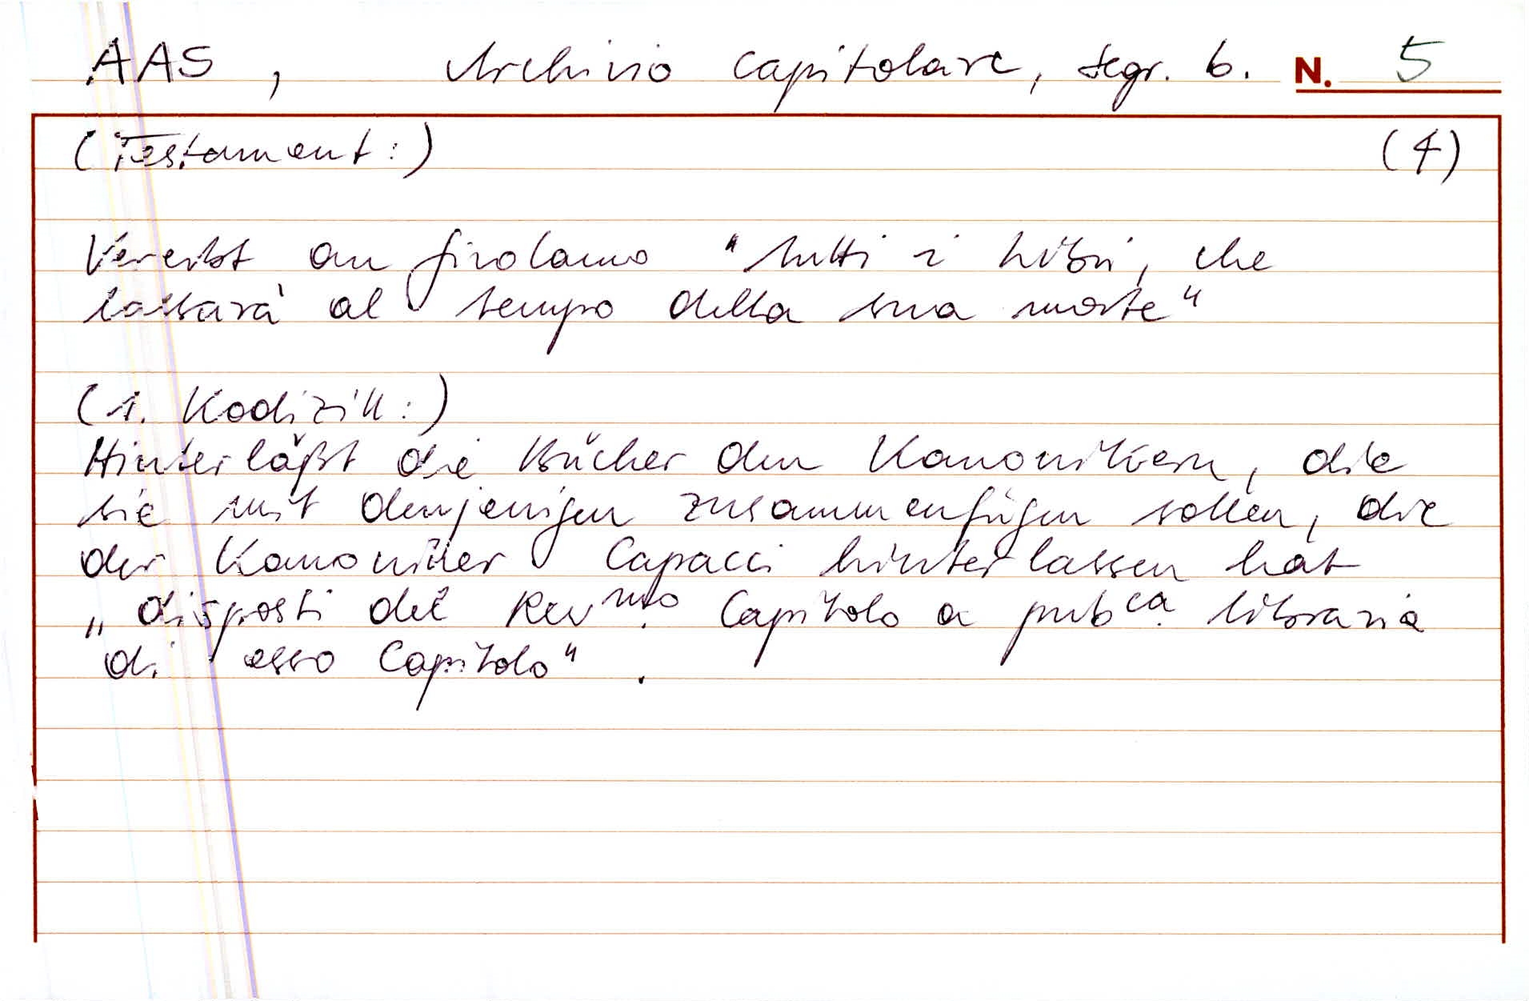 AAS, Archivio Capitolare, segr. 6. N. 5
(Testament:) (4)
Vererbt an Girolamo "tutti i libri, che
lassarà al tempo della sua morte"
(1. Kodizill:)
Hinterläßt die Bücher den Kanonikern, die
sie mit denjenigen zusammenfügen sollen, die
der Kanoniker Capacci hinterlassen hat
„disposti del Rev.mo Capitolo a pub.ca libraria
di esso Capitolo".